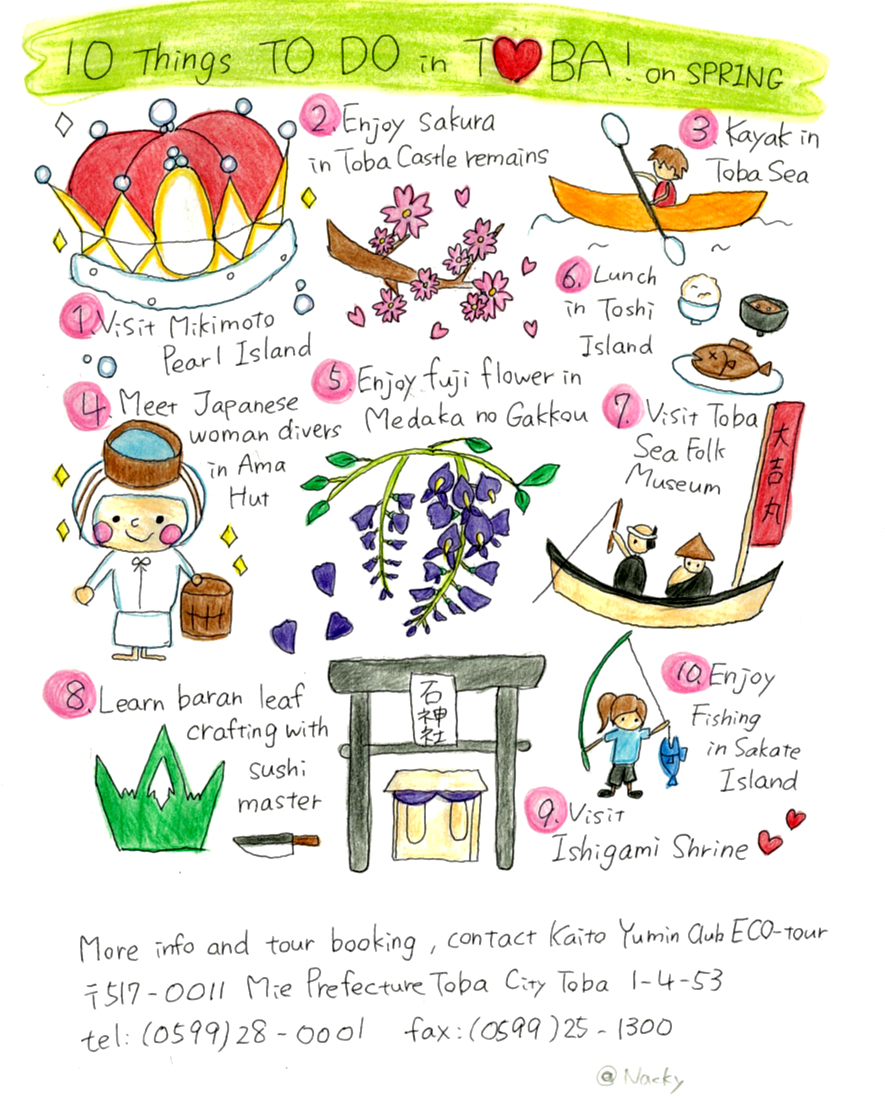 10 Things TO DO in T♥BA! on SPRING
1. Visit Mikimoto
Pearl Island
2. Enjoy sakura
in Toba Castle remains
3. Kayak in
Toba Sea
4. Meet Japanese
woman divers
in Ama
Hut
5. Enjoy fuji flower in
Medaka no Gakkou
6. Lunch
in Toshi
Island
7. Visit Toba
Sea Folk
Museum
大吉丸
8. Learn baran leaf
crafting with
sushi
master
石神社
9. Visit
Ishigami Shrine
10. Enjoy
Fishing
in Sakate
Island
More info and tour booking, contact Kaito Yumin Club ECO-tour
〒517-0011 Mie Prefecture Toba City Toba 1-4-53
tel: (0599)28-0001 fax: (0599)25-1300
@Nacky